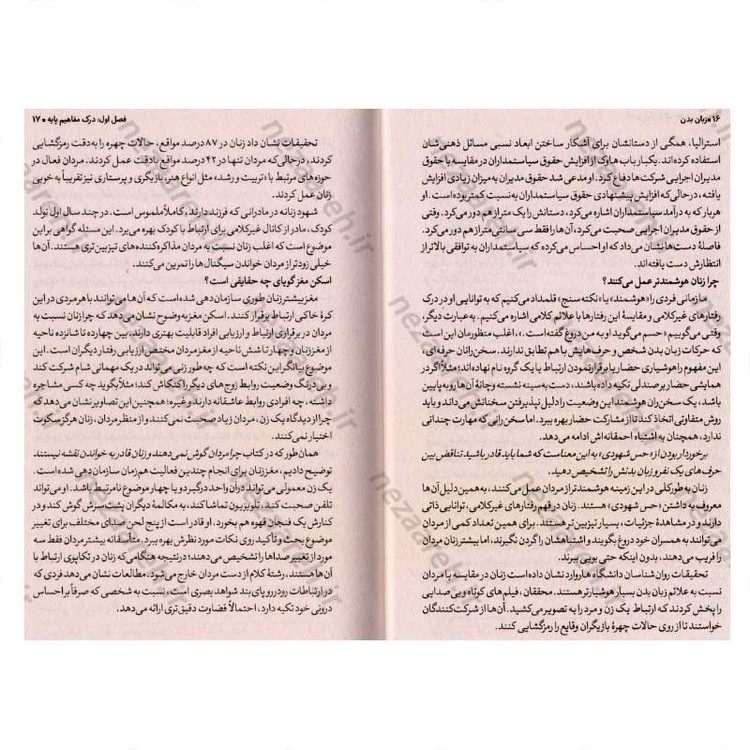 ۱۶ • زبان بدن
استرالیا، همگی از دستانشان برای آشکار ساختن ابعاد نسبی مسائل ذهنی‌شان
استفاده کرده‌اند. یکبار باب هاوک از افزایش حقوق سیاستمداران در مقایسه با حقوق
مدیران اجرایی شرکت‌ها دفاع کرد. او مدعی شد حقوق مدیران به میزان زیادی افزایش
یافته، درحالی‌که افزایش پیشنهادی حقوق سیاستمداران به نسبت کمتر بوده است. او
هربار که به درآمد سیاستمداران اشاره می‌کرد، دستانش را یک متر از هم دور می‌کرد. وقتی
از حقوق مدیران اجرایی صحبت می‌کرد، آن‌ها را فقط سی سانتی‌متر از هم دور می‌کرد.
فاصلۀ دست‌ها نشان می‌داد که او احساس می‌کرده که سیاستمداران به توافقی بالاتر از
انتظارش دست یافته‌اند.
چرا زنان هوشمندتر عمل می‌کنند؟
ما زمانی فردی را «هوشمند» یا «نکته سنج» قلمداد می‌کنیم که به توانایی او در درک
رفتارهای غیرکلامی و مقایسۀ این رفتارها با علائم کلامی اشاره می‌کنیم. به عبارت دیگر،
وقتی می‌گوییم «حسم می‌گوید او به من دروغ گفته است.»، اغلب منظورمان این است
که حرکات زبان بدن شخص و حرف‌هایش با هم تطابق ندارند. سخن‌رانان حرفه‌ای،
این مفهوم را هوشیاری حضار یا برقرار نمودن ارتباط با یک گروه نام نهاده‌اند؛ مثلاً اگر در
همایشی حضار بر صندلی تکیه داده باشند، دست به سینه نشسته و چانۀ آن‌ها رو به پایین
باشد، یک سخن‌ران هوشمند این وضعیت را دلیل نپذیرفتن سخنانش می‌داند و باید
روش متفاوتی اتخاذ کند تا از مشارکت حضار بهره ببرد. اما سخن‌رانی که مهارت چندانی
ندارد، همچنان به اشتباه احمقانه‌اش ادامه می‌دهد.
برخوردار بودن از «حس شهودی» به این معناست که شما باید قادر باشید تناقض بین
حرف‌های یک نفر و زبان بدنش را تشخیص دهید.
زنان به طور کلی در این زمینه هوشمندتر از مردان عمل می‌کنند، به همین دلیل آن‌ها
معروف به داشتن «حس شهودی» هستند. زنان در فهم رفتارهای غیرکلامی، توانایی ذاتی
دارند و در مشاهدۀ جزئیات، بسیار تیزبین‌تر هستند. برای همین تعداد کمی از مردان
می‌توانند به همسران خود دروغ بگویند و اشتباهشان را گردن نگیرند، اما بیشتر زنان مردان
را فریب می‌دهند، بدون اینکه حتی بویی ببرند.
تحقیقات روان‌شناسان دانشگاه هاروارد نشان داده است زنان در مقایسه با مردان
نسبت به علائم زبان بدن بسیار هوشیارتر هستند. محققان، فیلم‌های کوتاه و بی‌صدایی
را پخش کردند که ارتباط یک زن و مرد را به تصویر می‌کشید. آن‌ها از شرکت‌کنندگان
خواستند تا از روی حالات چهرۀ بازیگران وقایع را رمزگشایی کنند.
فصل اول: درک مفاهیم پایه • ۱۷
تحقیقات نشان داد زنان در ۸۷ درصد مواقع، حالات چهره را به‌دقت رمزگشایی
کردند، درحالی‌که مردان تنها در ۴۲ درصد مواقع با دقت عمل کردند. مردان فعال در
حوزه‌های مرتبط با «تربیت و رشد»، مثل انواع هنر، بازیگری و پرستاری نیز تقریباً به خوبی
زنان عمل کردند.
شهود زنانه در مادرانی که فرزند دارند، کاملاً ملموس است. در چند سال اول تولد
کودک، مادر از کانال غیرکلامی برای ارتباط با کودک بهره می‌برد. این مسئله گواهی بر این
موضوع است که اغلب زنان نسبت به مردان مذاکره‌کننده‌های تیزبین‌تری هستند. آن‌ها
خیلی زودتر از مردان خواندن سیگنال‌ها را تمرین می‌کنند.
اسکن مغز گویای چه حقایقی است؟
مغز بیشتر زنان طوری سازمان‌دهی شده است که آن‌ها می‌توانند با هر مردی در این
کرۀ خاکی ارتباط برقرار کنند. اسکن مغز به وضوح نشان می‌دهد که چرا زنان نسبت به
مردان در برقراری ارتباط و ارزیابی افراد قابلیت بهتری دارند. بین چهارده تا شانزده ناحیه
از مغز زنان و چهار تا شش ناحیه از مغز مردان مختص ارزیابی رفتار دیگران است. این
موضوع بیانگر این نکته است که چطور زنی می‌تواند در یک مهمانی شام شرکت کند
و بی‌درنگ وضعیت روابط زوج‌های دیگر را کنکاش کند؛ مثلاً بگوید چه کسی مشاجره
داشته، چه افرادی روابط عاشقانه دارند و غیره؛ همچنین این تصاویر نشان می‌دهد که
چرا از دیدگاه یک زن، مردان زیاد صحبت نمی‌کنند و از منظر مردان، زنان هرگز سکوت
اختیار نمی‌کنند.
همان‌طور که در کتاب چرا مردان گوش نمی‌دهند و زنان قادر به خواندن نقشه نیستند
توضیح دادیم، مغز زنان برای انجام چندین فعالیت هم‌زمان سازمان‌دهی شده است.
یک زن معمولی می‌تواند در آن واحد درگیر دو یا چهار موضوع نامرتبط باشد. او می‌تواند
تلفن صحبت کند، تلویزیون تماشا کند، به مکالمۀ دیگران پشت سرش گوش کند و در
کنارش یک فنجان قهوه هم بخورد. او قادر است از پنج لحن صدای مختلف برای تغییر
موضوع بحث و تأکید روی نکات مورد نظرش بهره ببرد. متأسفانه بیشتر مردان فقط سه
مورد از تغییر صداها را تشخیص می‌دهند؛ درنتیجه هنگامی که زنان در تکاپوی ارتباط با
آن‌ها هستند، رشتۀ کلام از دست مردان خارج می‌شود. مطالعات نشان می‌دهد فردی که
در ارتباطات رودررو پای بند شواهد بصری است، نسبت به شخصی که صرفاً بر احساس
درونی خود تکیه دارد، احتمالاً قضاوت دقیق‌تری ارائه می‌دهد.
nezaareh.ir